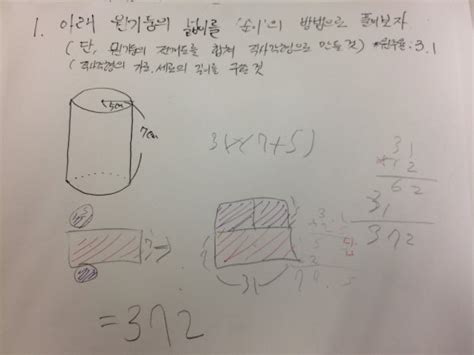 1. 아래 원기둥의 넓이를 '순이'의 방법으로 풀어보자
(단, 원기둥의 전개도를 합쳐 직사각형으로 만들 것) 원주율: 3.1
(직사각형의 가로, 세로의 길이를 구할 것
5cm
7cm
31×(7+5)
31
12
62
31
372
답
31
=372